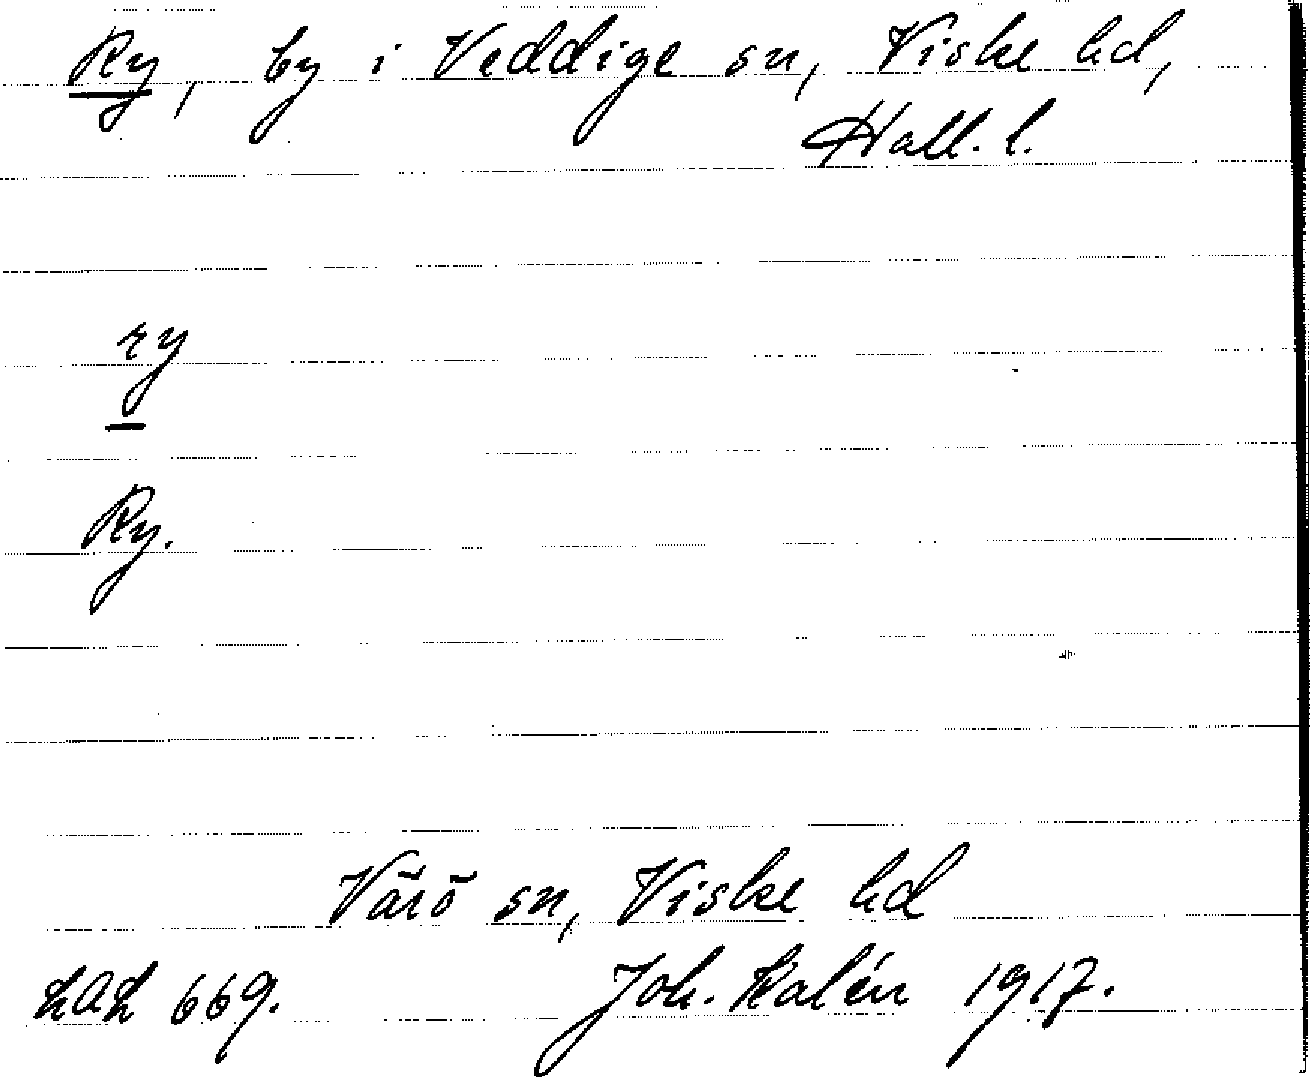 Ry, by i Veddige sn, Viske hd,
Hall. l.
ry
Ry.
Värö sn, Viske hd
669. Joh. Kalén 1917.